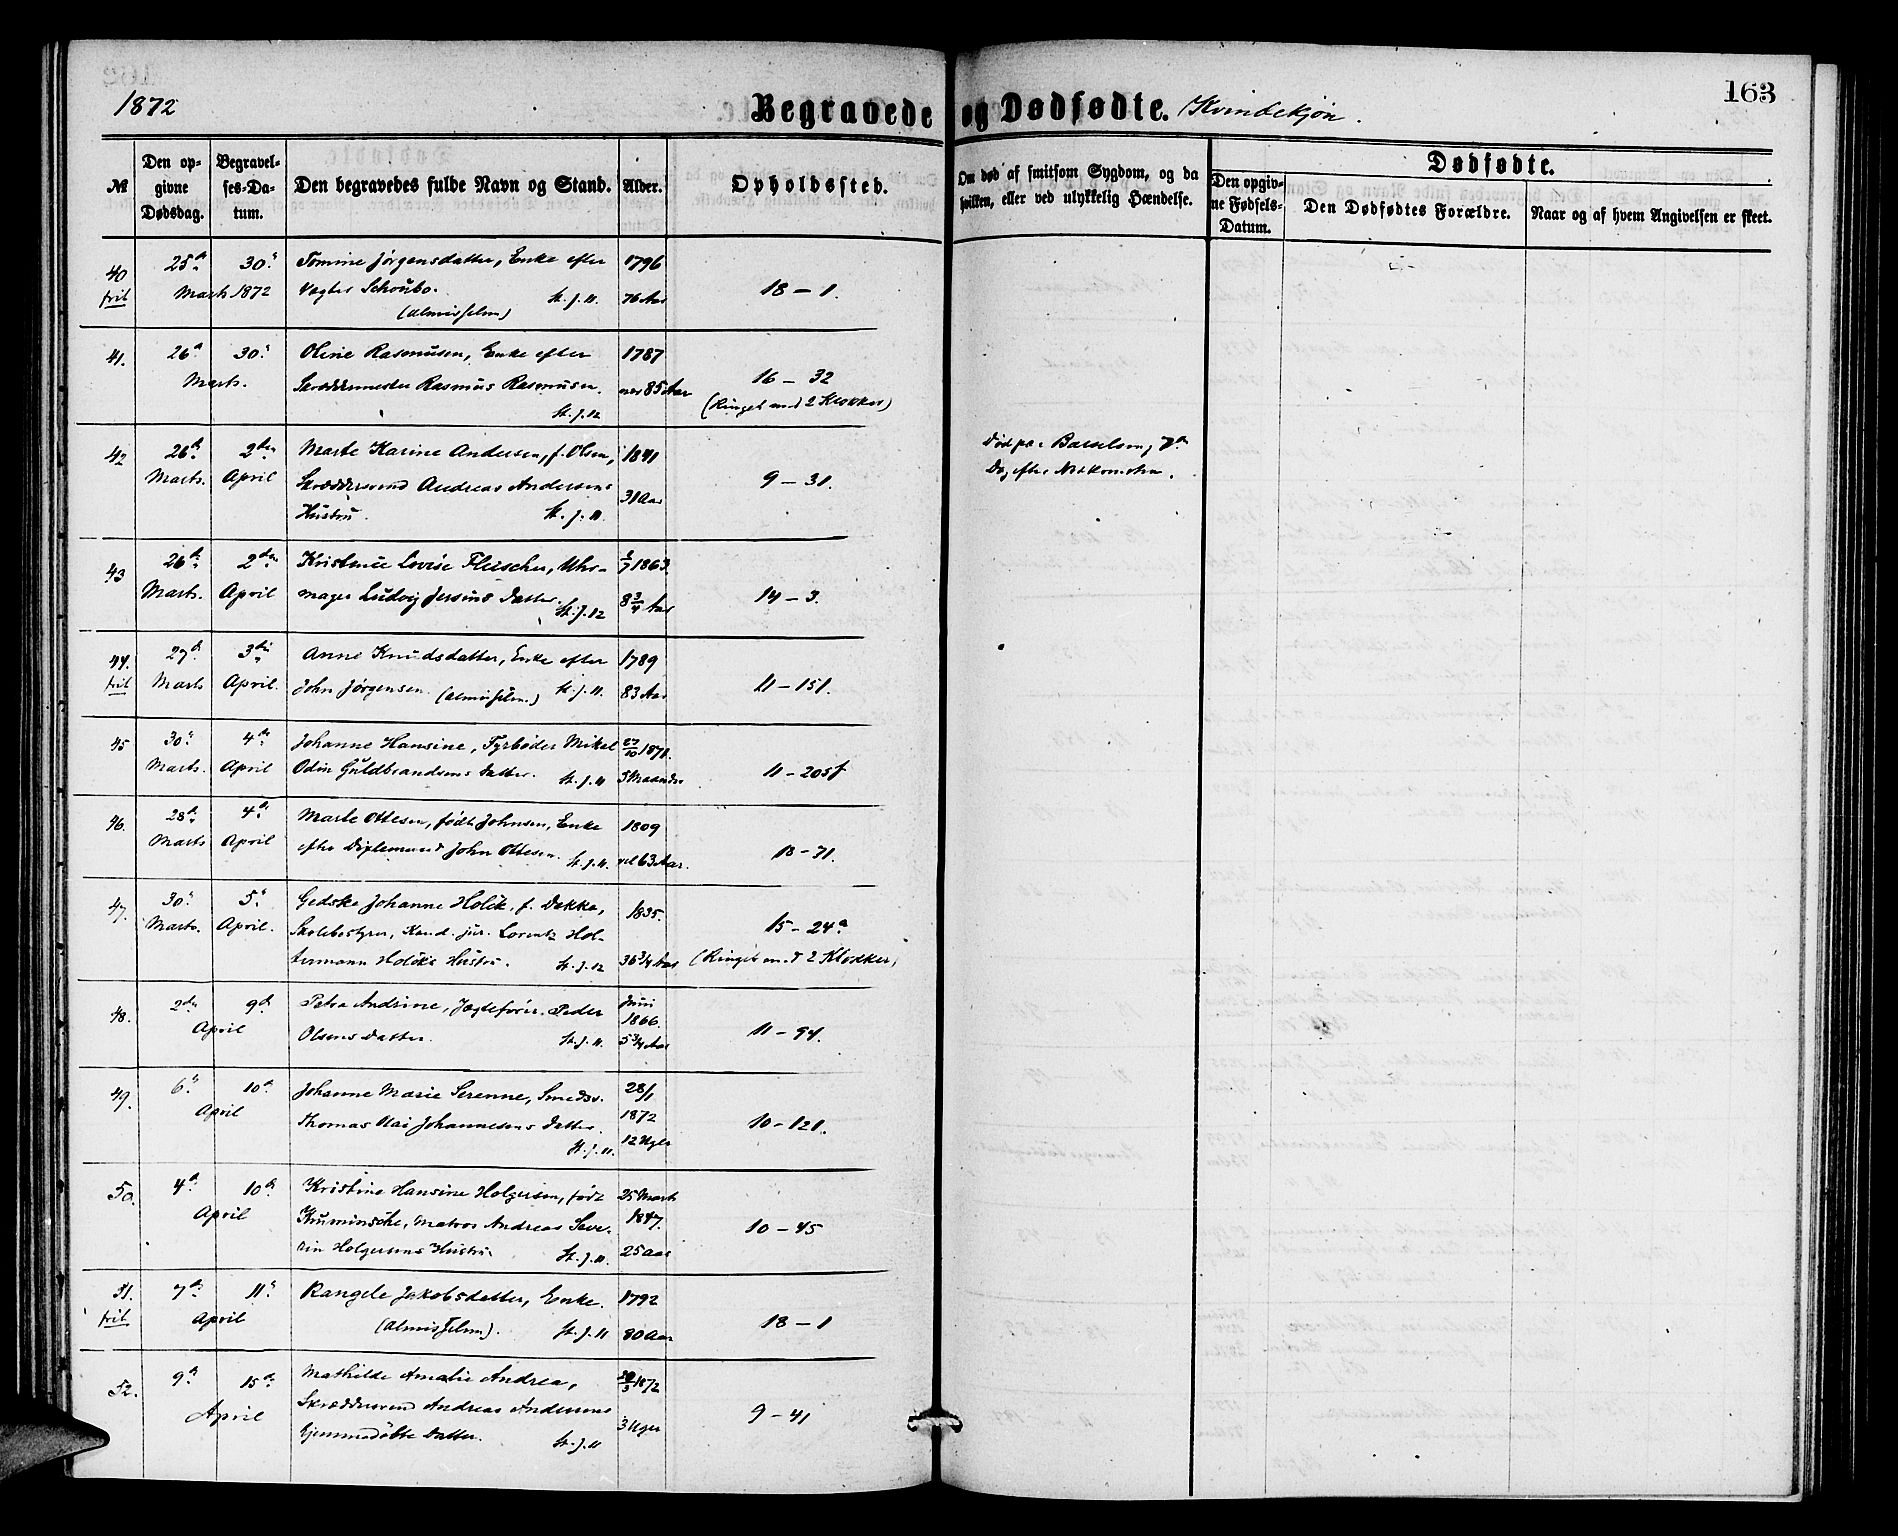 1872
Begravede og Dødfødte. Kvindekjøn.
163
№
Den opgivne Dødsdag.
Begravelses-Datum.
Den begravedes fulde Navn og Stand.
Alder.
Opholdssted.
Om død af smitsom Sygdom, og da hvilken, eller ved ulykkelig Hændelse.
Dødfødte.
Den opgivne Fødsels-Datum.
Den Dødfødtes Forældre.
Naar og af hvem Angivelsen er skeet.
40 25d 30. Tomine Jørgensdatter, Enke efter 1796
frit Marts 1872 Vægter Schoubo. St. J. 11. 76 Aar 18 - 1.
(Almisselem)
41. 26d 30. Oline Rasmusen, Enke efter 1787
Marts. Skræddermester Rasmus Rasmusen. 85 Aar 16 - 32
St. J. 12 (Ringet med 2 Klokker)
42 26d 2den Marte Karine Andersen, f. Olsen, 1841
Marts. April Skræddersvend Andreas Andersens 31 Aar 9 - 31.
Hustru. St. J. 11.
Død paa Barselseng 7d
Dag efter Nedkomsten.
43 26d 2den Kristine Lovise Fleischer, Uhr- 1863.
Marts. April mager Ludvig Datter. 8 3/4 Aar 14 - 3.
St. J. 12
44. 27d 3die Anne Knudsdatter, Enke efter 1789
frit Marts April. John Jørgensen. (Almisselem.) St. J. 11. 83 Aar 11 - 151.
45 30. 4de Johanne Hansine, Fyrbøder Mikel 27/10 1871.
Marts. April Odin Guldbrandsens Datter. St. J. 11 5 Maaneder 11 - 205f
46. 28d 4de Marte Ottesen, født Johnsen, Enke 1809
Marts April efter John Ottesen. St. J. 11. 63 Aar. 18 - 71.
47. 30. 5. Gedske Johanne f. Dekke, 1835.
Marts. April. Skolebestyrer, Kand. jur. Lorentz Hol- 15 - 24a
termann Hustru. St. J. 12 36 3/4 Aar (Ringet med 2 Klokker)
48. 2den 9d Petra Andrine, Jægtefører Peder Juni
April 1866.
Olsens Datter. St. J. 11. 5 3/4 Aar 11 - 94.
49. 6. 10d Johanne Marie Serenne, Smedsv. 28/1
April 1872
Thomas Johannesens Datter. 10 - 121.
St. J. 11. 12 Uger
50. 4d 10d Kristine Hansine Holgersen, født 25 Marts
April Matros Andreas Seve- 1847. 10 - 45
rin Holgersens Hustru St. J. 11. 25 Aar
51. 7d 11. Rangele Jakobsdatter, Enke. 1792
frit April (Almisselem). St. J. 11 80 Aar 18 - 1
52. 9d 15d Mathilde Amalie Andrea, 1872
April Skræddersvend Andreas Andersens 3 Uger 9 - 41
hjemmedøbte Datter. St. J. 11